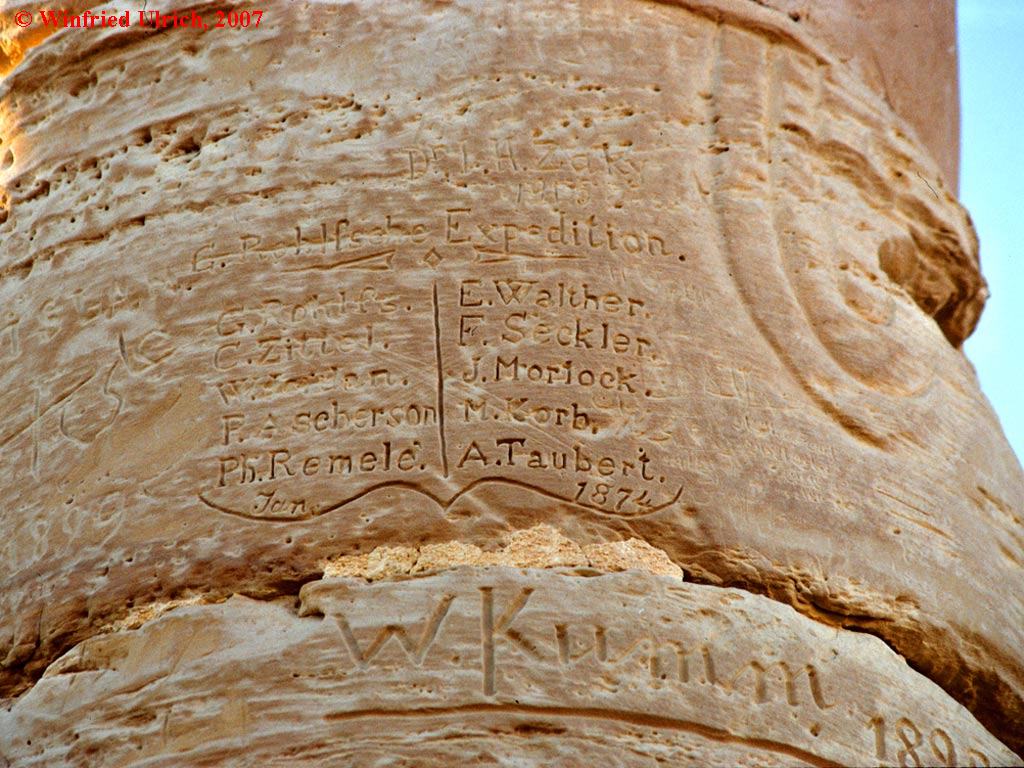 © Winfried Ulrich, 2007
Dr. I. H. Zaky
G. Rohlfsche Expedition.
G. Rohlfs.
C. Zittel.
W. Jordan.
P. Ascherson
Ph. Remelé.
E. Walther.
F. Seckler.
J. Morlock.
M. Korb.
A. Taubert.
Jan. 1874
W. Kumm